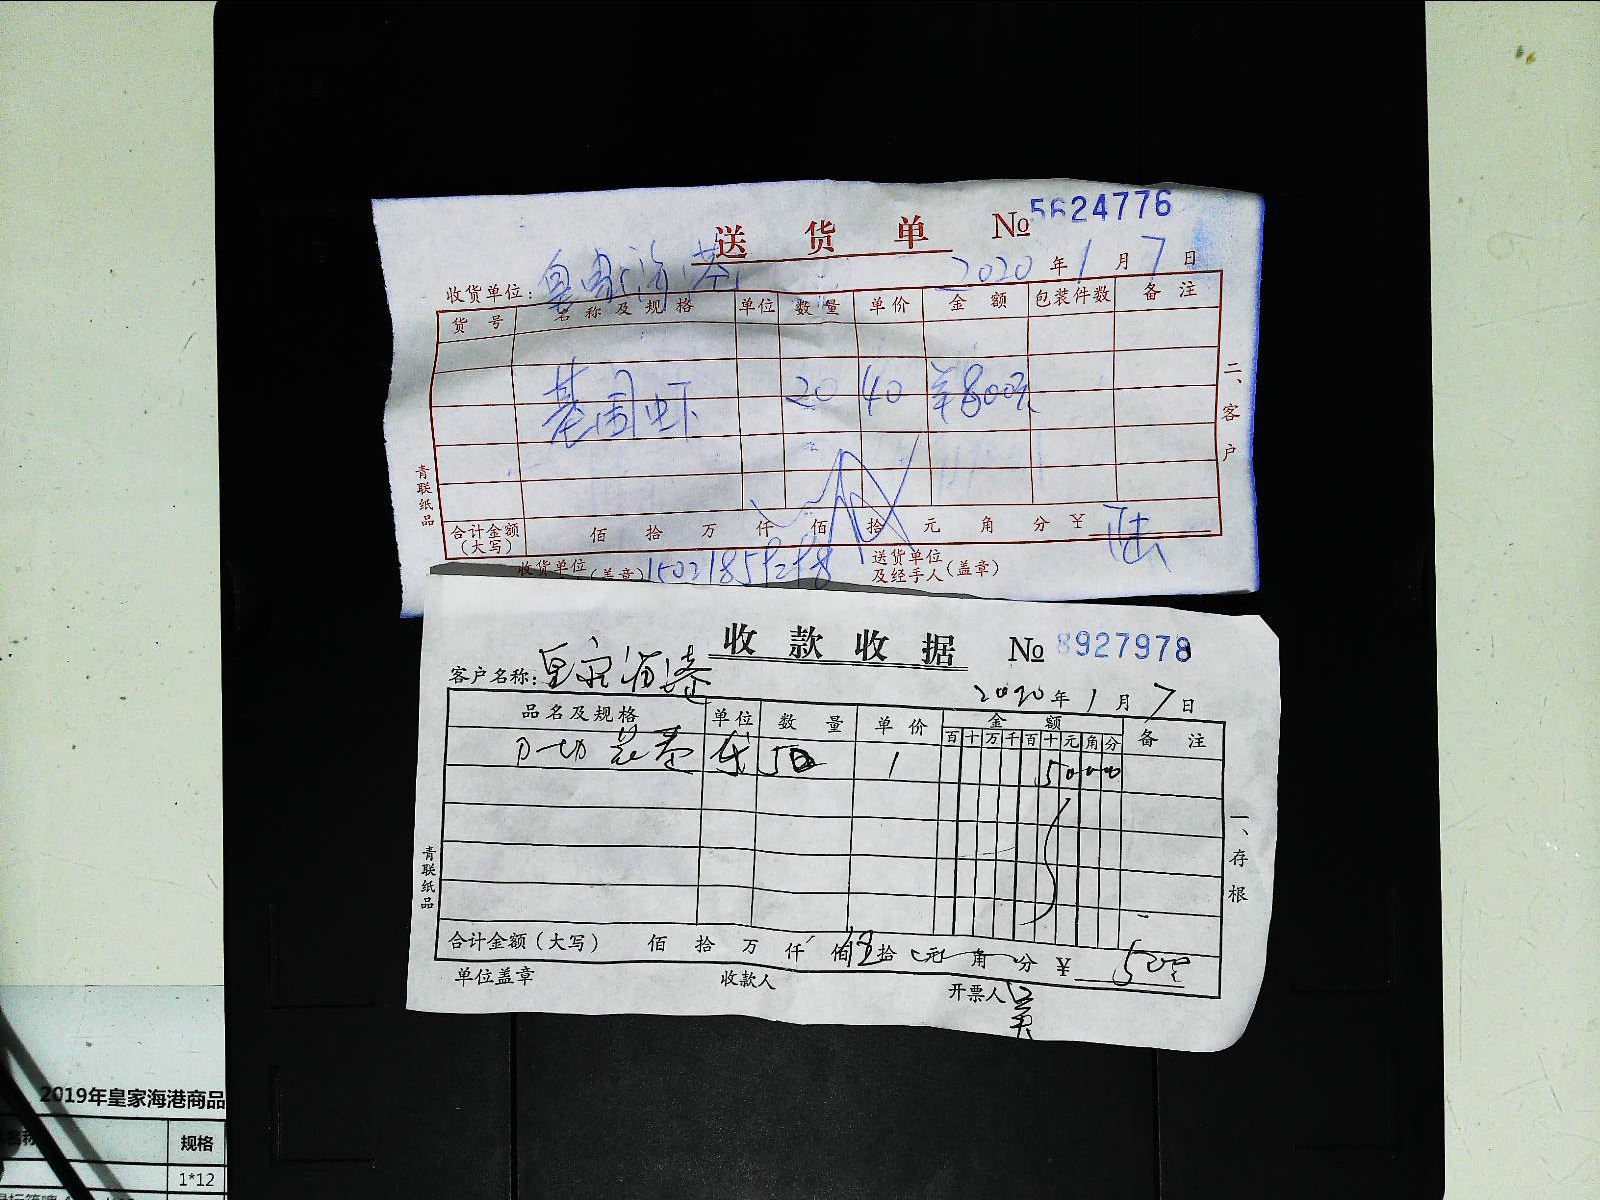 送货单 № 5624776
收货单位: 皇家海港 2020年1月7日
货号 名称及规格 单位 数量 单价 金额 包装件数 备注
基围虾 20 40 ¥800元
二、客户
青联纸品
合计金额(大写) 佰 拾 万 仟 佰 拾 元 角 分 ¥ 陆
收货单位(盖章) 送货单位及经手人(盖章)
收款收据 № 8927978
客户名称: 皇家海港 2020年1月7日
品名及规格 单位 数量 单价 金额 备注
百十万千百十元角分
袋 50 1 5000
一、存根
青联纸品
合计金额(大写) 佰 拾 万 仟 佰 伍拾 元 角 分 ¥
单位盖章 收款人 开票人 吴
2019年皇家海港商品
规格
1*12